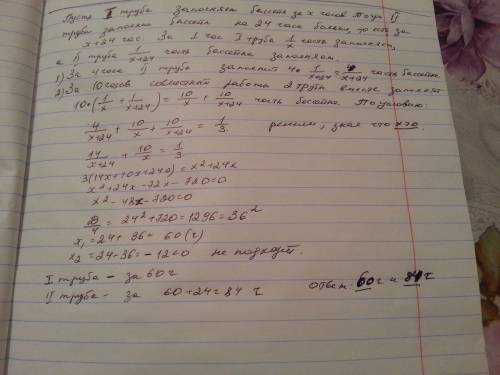 Пусть I труба заполняет бассейн за x часов, тогда II
труба заполняет бассейн на 24 часа больше, то есть за
x+24 час. За 1 час I труба 1/x часть заполняет,
а II труба 1/(x+24) часть бассейна заполняет.
1) За 4 часа II труба заполнит 4·1/(x+24) = 4/(x+24) часть бассейна.
2) За 10 часов совместной работы 2 трубы вместе заполнят
10·(1/x + 1/(x+24)) = 10/x + 10/(x+24) часть бассейна По условию:
4/(x+24) + 10/x + 10/(x+24) = 1/3. решим, зная что x>0.
14/(x+24) + 10/x = 1/3
3(14x+10x+240) = x²+24x
x²+24x-72x-720=0
x²-48x-720=0
D/4 = 24²+720=1296=36²
x₁=24+36=60(ч)
x₂=24-36=-12<0 не подходит.
I труба – за 60 ч
II труба – за 60+24=84 ч Ответ: 60 ч и 84 ч